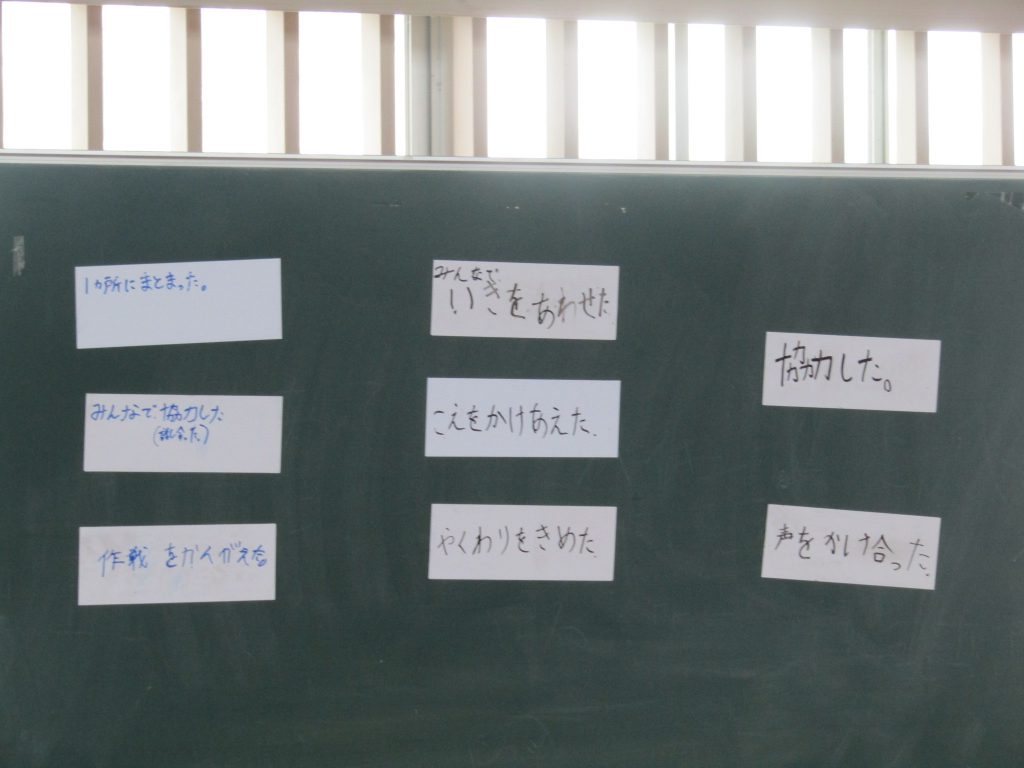 1カ所にまとまった。
みんなで協力した
(話し合った)
作戦をかんがえた。
みんなで
いきをあわせた
こえをかけあえた.
やくわりをきめた
協力した。
声をかけ合った.